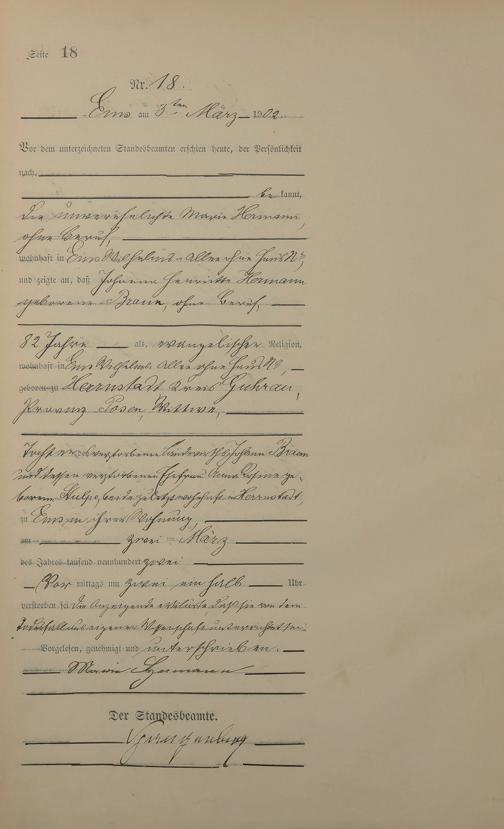 Seite 18
Nr. 18.
Ems am 3ten März 1902.
Vor dem unterzeichneten Standesbeamten erschien heute, der Persönlichkeit
nach,
be kannt,
die unverehelichte Marie Hermann,
ohne Beruf,
wohnhaft in Ems Wilhelms-Allee ohne Haus No,
und zeigte an, daß Johanna Henriette Hermann
geborene Braun, ohne Beruf,
82 Jahre alt, evangelischer Religion,
wohnhaft in Ems Wilhelms Allee ohne Haus No,
geboren zu Herrnstadt Kreis Guhrau,
Provinz Posen, Wittwe,
Tochter des verstorbenen Landwirths Johann Braun
und dessen verstorbenen Ehefrau Anna ge-
borene beide zuletzt wohnhaft in Herrnstadt,
zu Ems in ihrer Wohnung,
am zwei März
des Jahres tausend neunhundert zwei
Vor mittags um zwei ein halb Uhr
verstorben sei. Die Anzeigende erklärte daß sie von dem
Todesfall aus eigener Wissenschaft unterrichtet sei.
Vorgelesen, genehmigt und unterschrieben.
Marie Hermann
Der Standesbeamte.